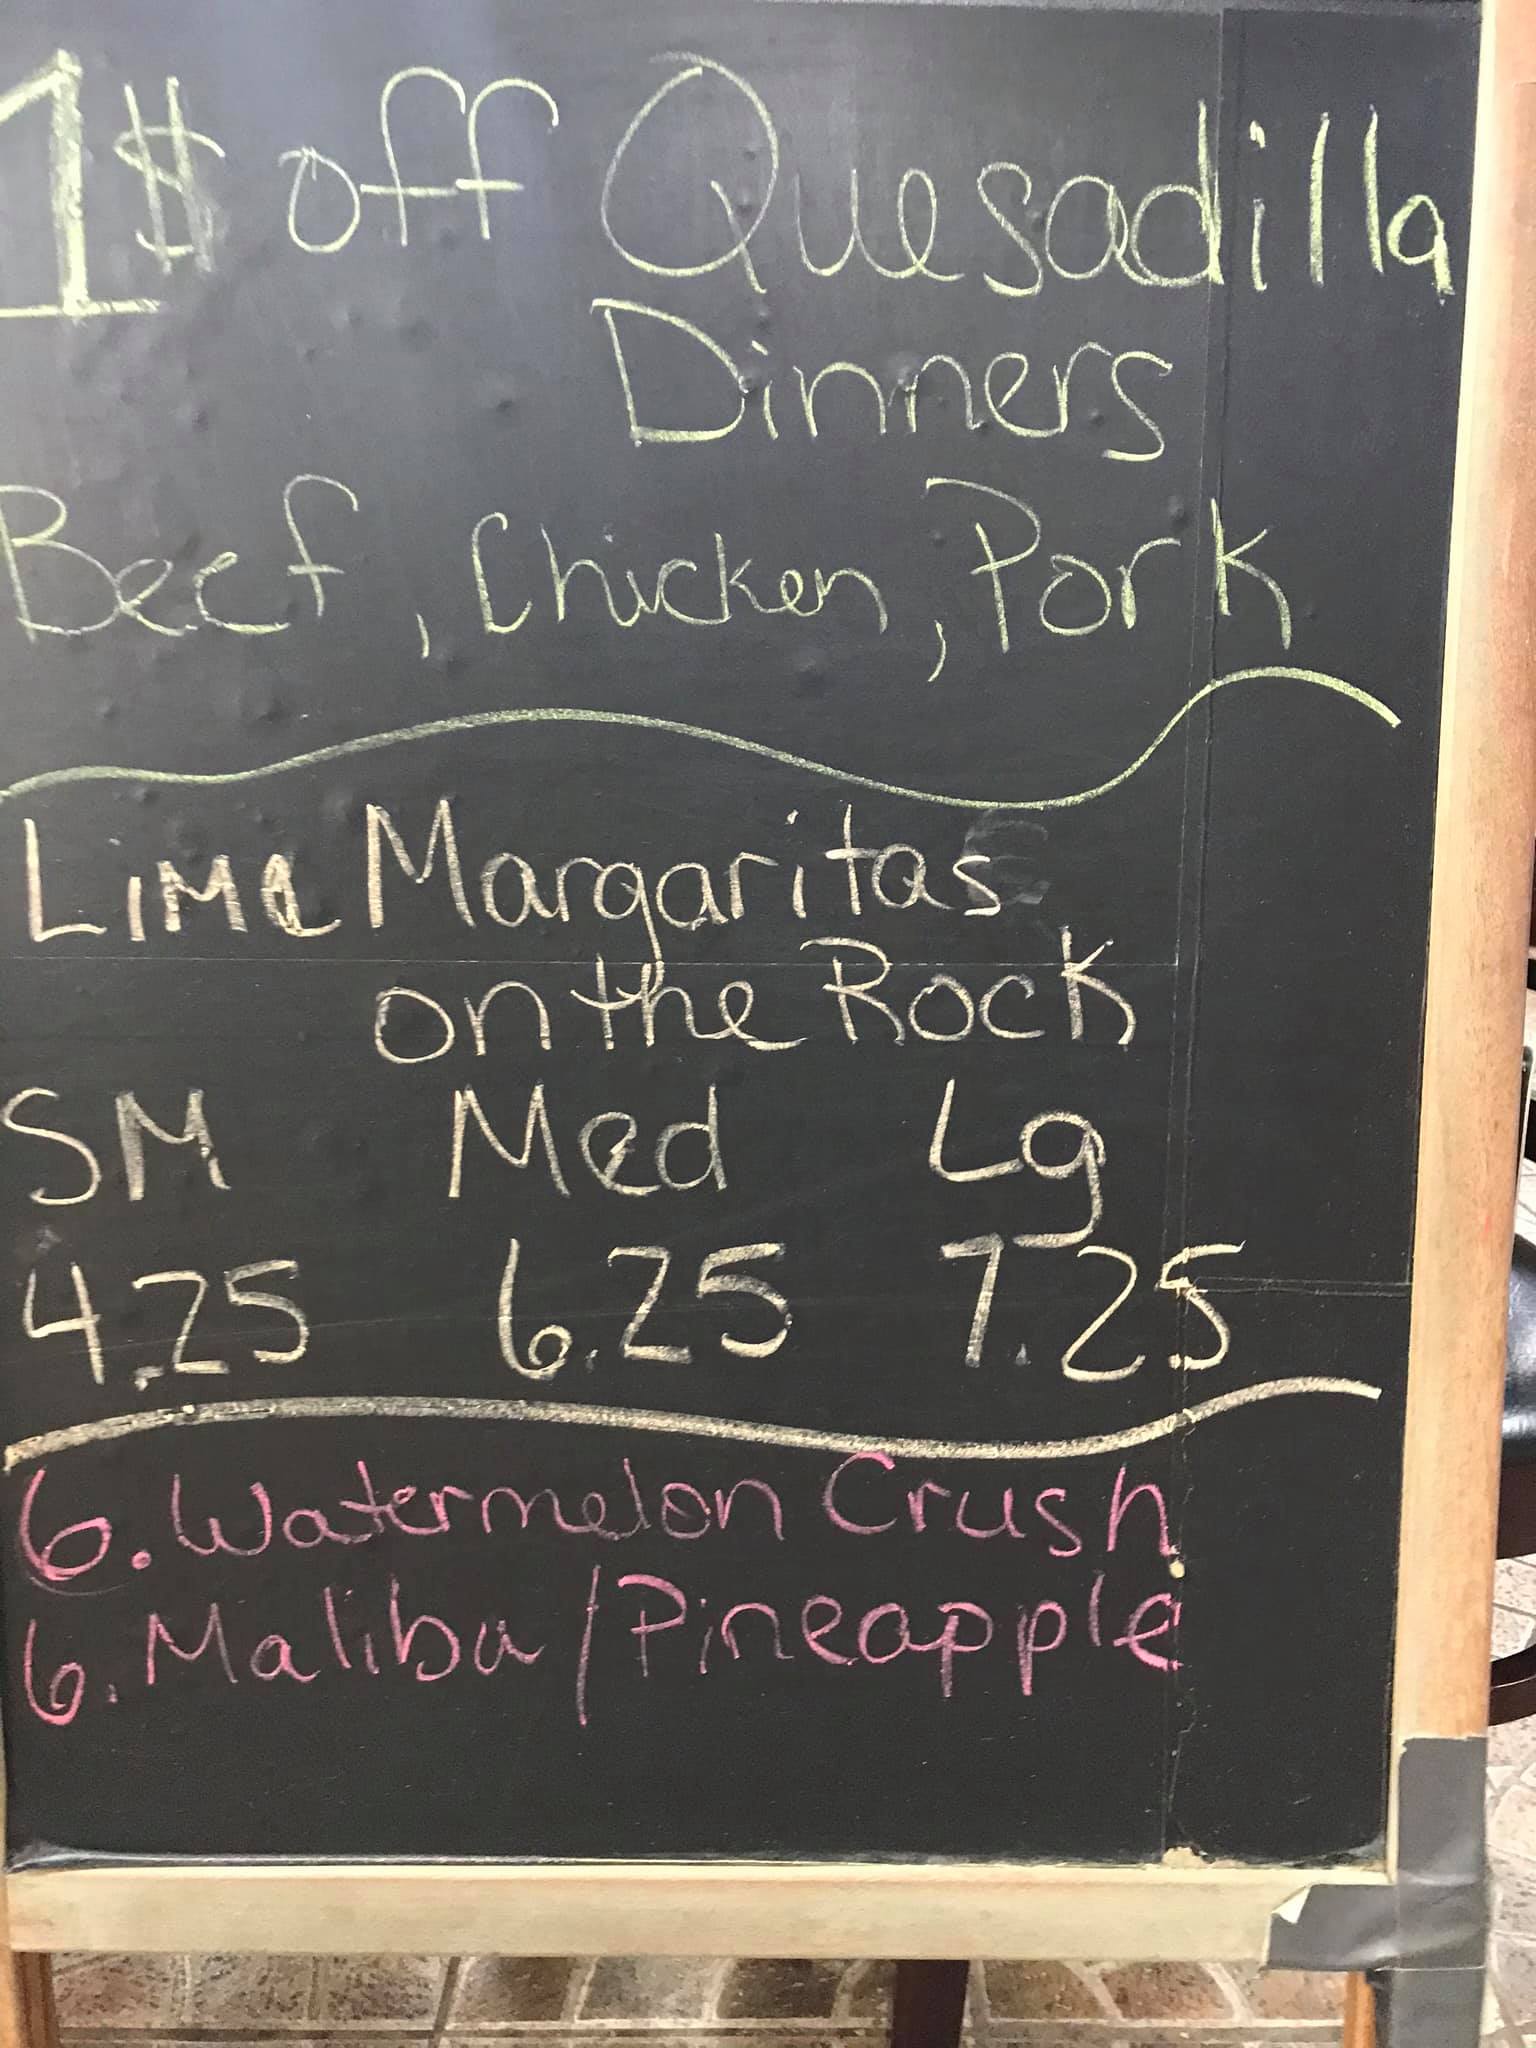 1$ off Quesadilla
Dinners
Beef, Chicken, Pork
Lime Margaritas
on the Rock
SM Med Lg
4.25 6.25 7.25
6. Watermelon Crush
6. Malibu/Pineapple